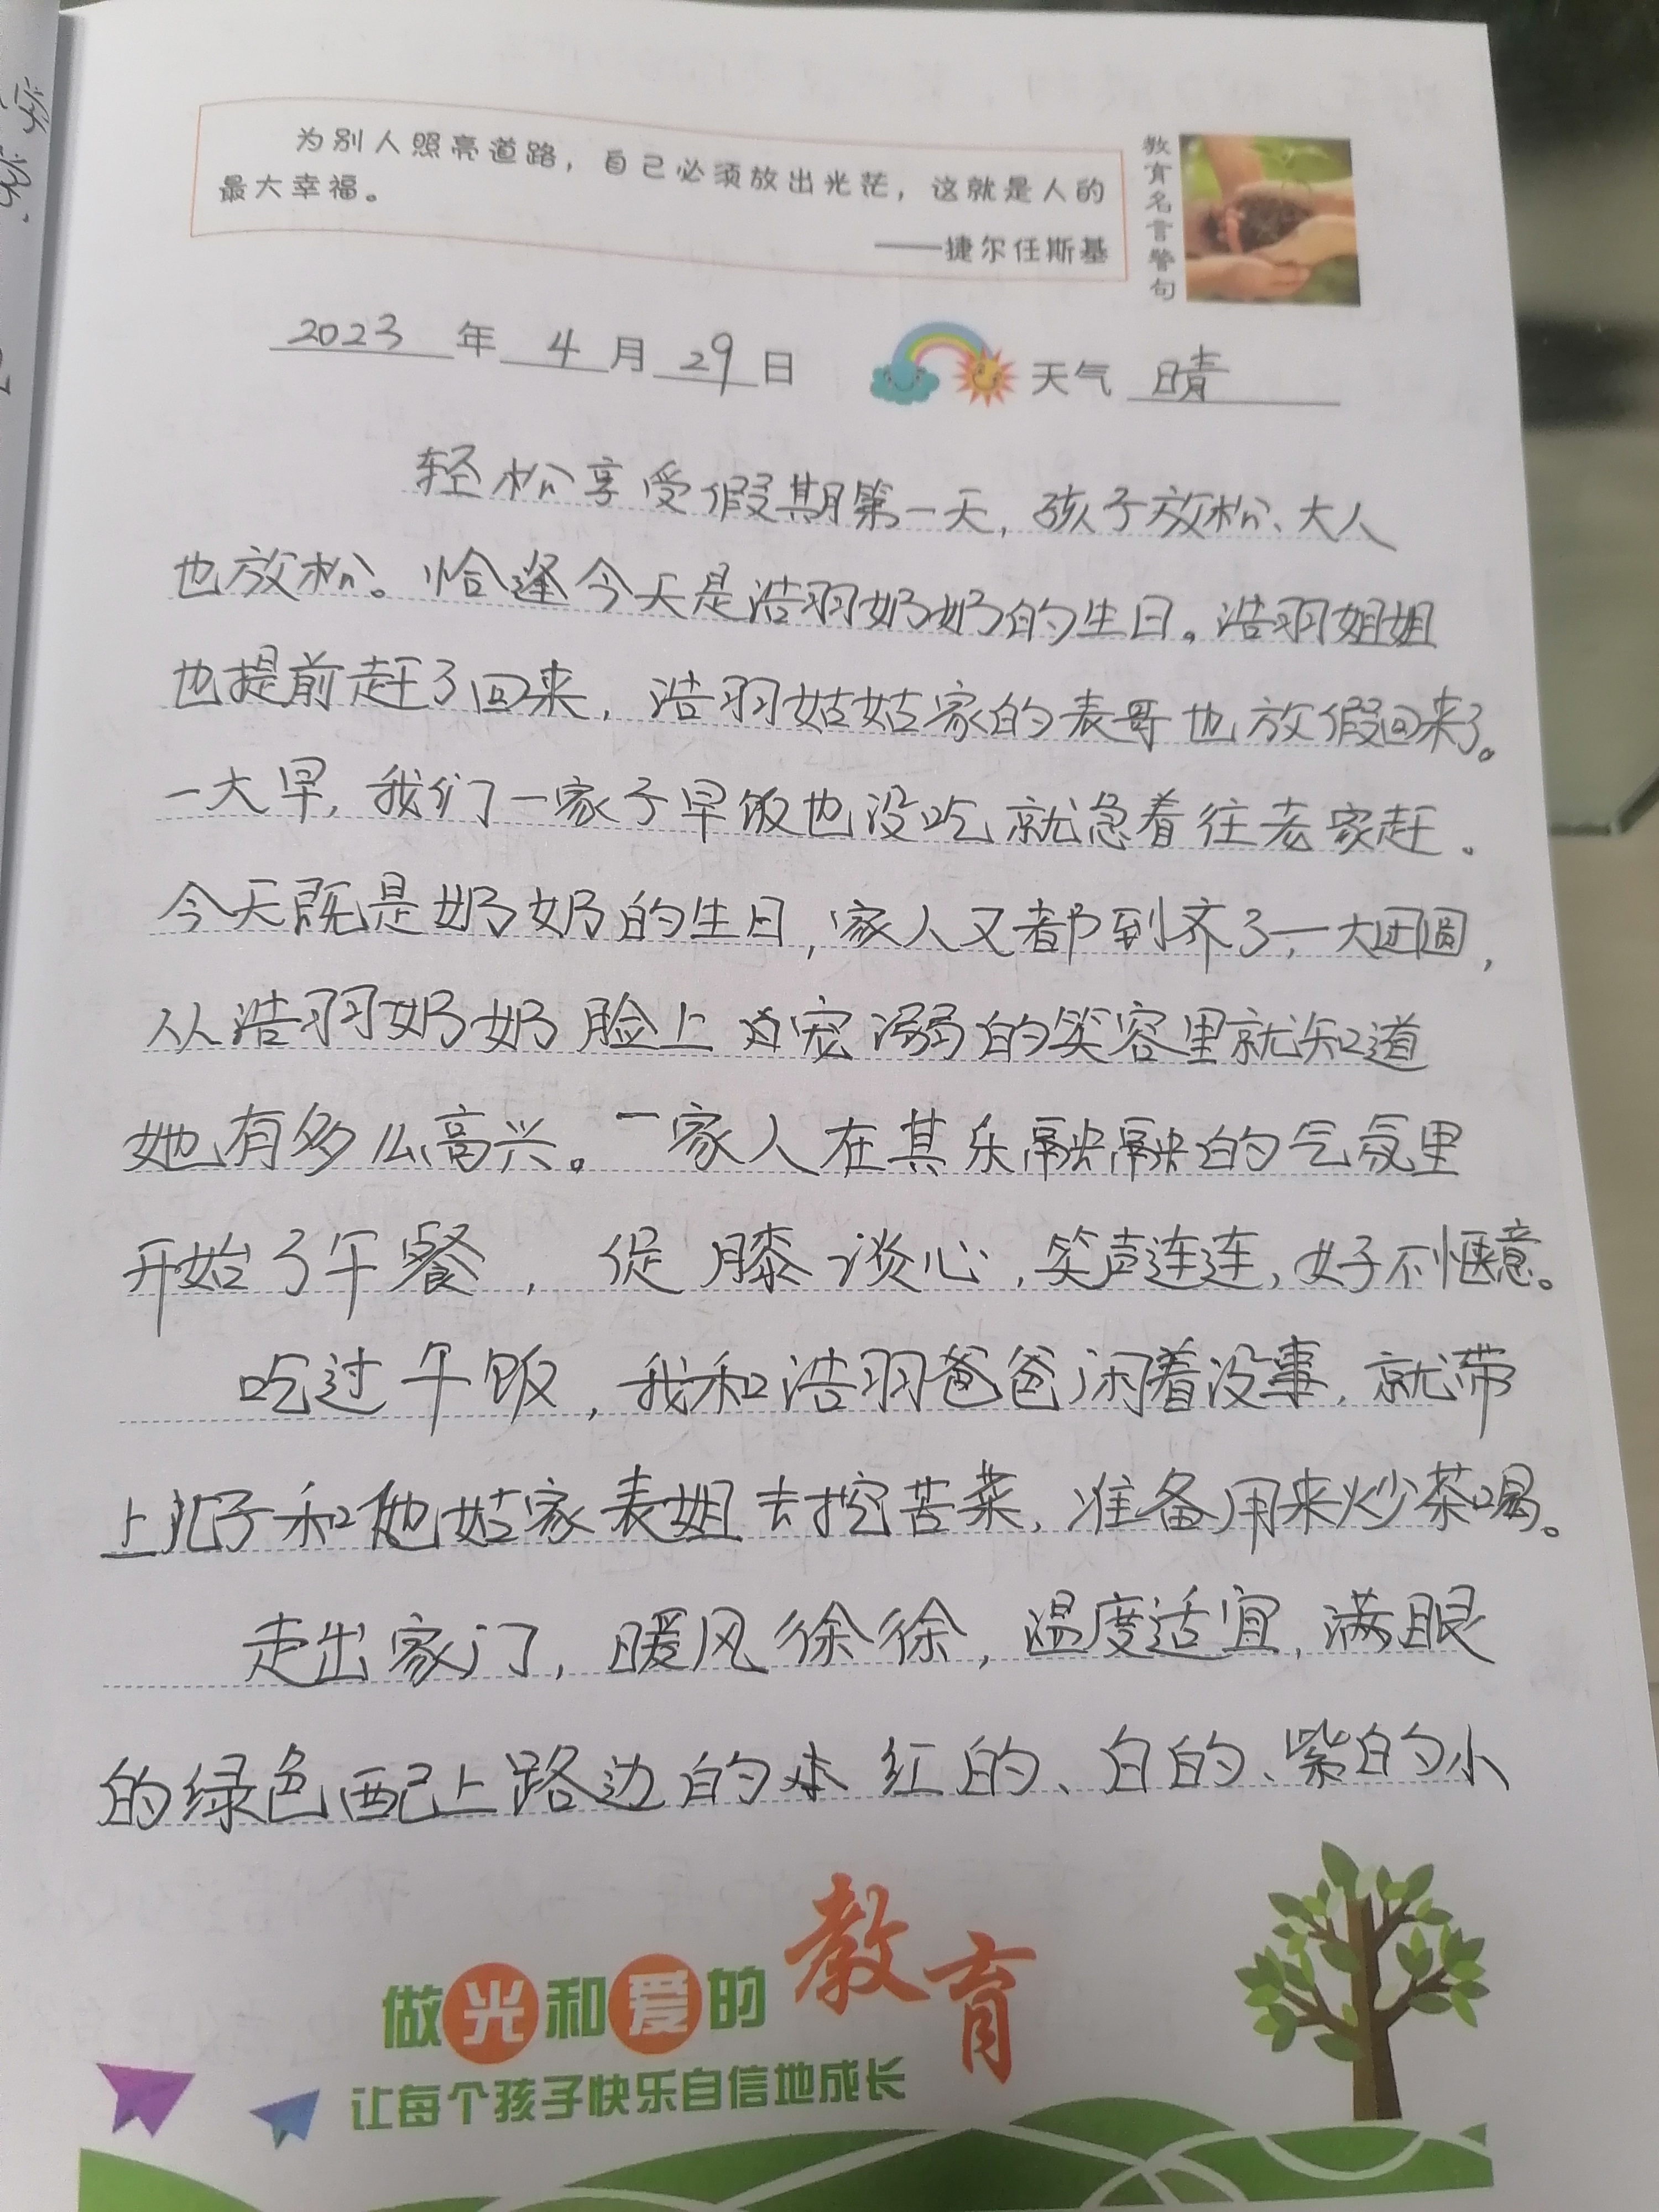 为别人照亮道路，自己必须放出光芒，这就是人的
最大幸福。
——捷尔任斯基
教育名言警句
2023年4月29日 天气 晴
轻松享受假期第一天，孩子放松、大人
也放松。恰逢今天是浩羽奶奶的生日。浩羽姐姐
也提前赶了回来，浩羽姑姑家的表哥也放假回来了。
一大早，我们一家子早饭也没吃就急着往老家赶。
今天既是奶奶的生日，家人又都到齐了，一大团圆，
从浩羽奶奶脸上宠溺的笑容里就知道
她有多么高兴。一家人在其乐融融的气氛里
开始了午餐，促膝谈心，笑声连连，好不惬意。
吃过午饭，我和浩羽爸爸闲着没事，就带
上儿子和他姑家表姐去挖苦菜，准备用来炒茶喝。
走出家门，暖风徐徐，温度适宜，满眼
的绿色配上路边的红的、白的、紫的小
做光和爱的教育
让每个孩子快乐自信地成长